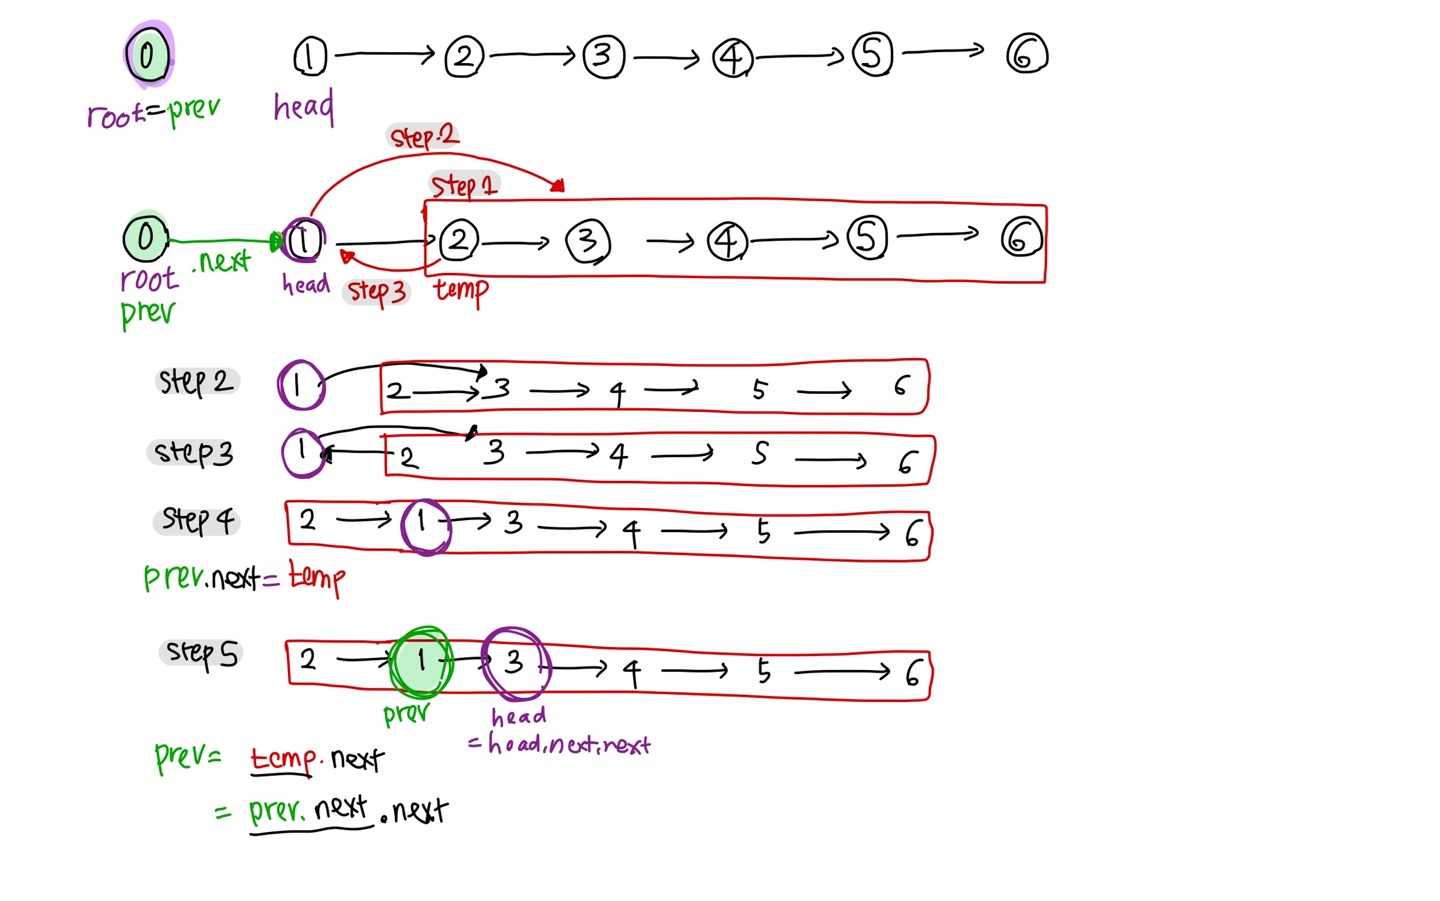 0 1 → 2 → 3 → 4 → 5 → 6
root=prev head
step.2
step1
0 1 → 2 → 3 → 4 → 5 → 6
.next
root head step3 temp
prev
step2 1 2 → 3 → 4 → 5 → 6
step3 1 ← 2 3 → 4 → 5 → 6
step4 2 → 1 → 3 → 4 → 5 → 6
prev.next= temp
step5 2 → 1 → 3 → 4 → 5 → 6
prev head
= head.next.next
prev= temp.next
= prev.next.next